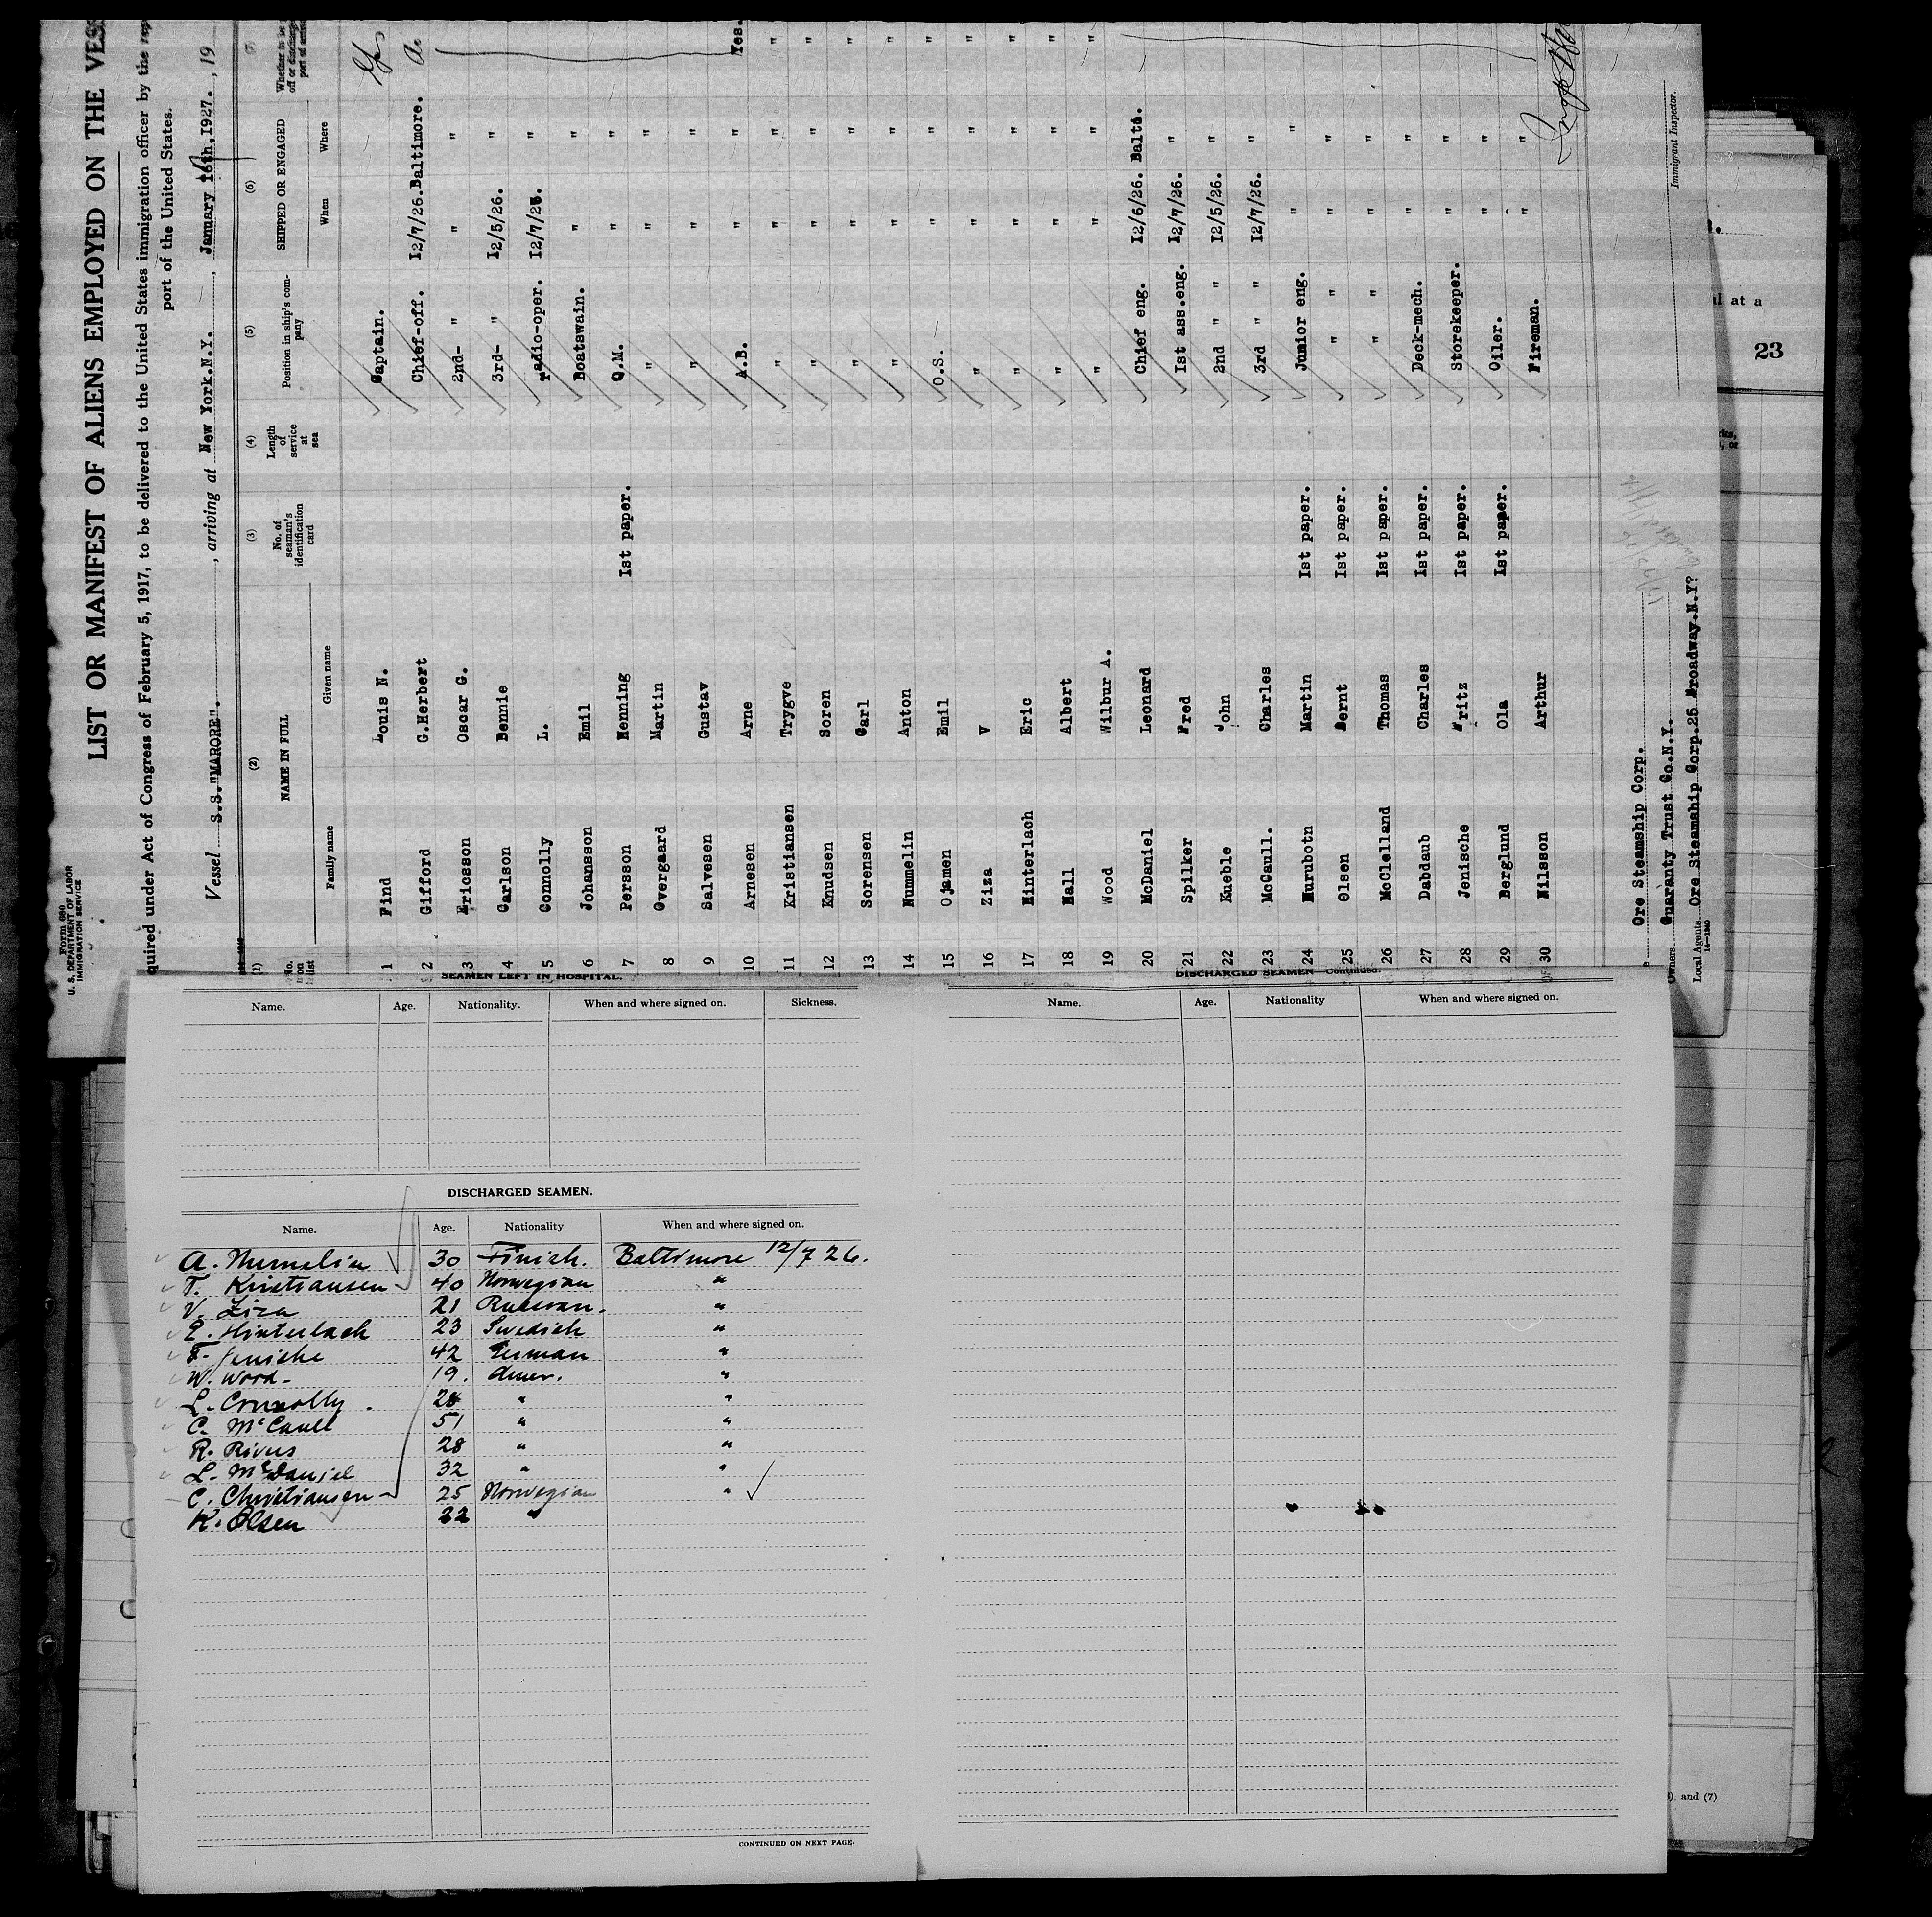 Form 680
U. S. DEPARTMENT OF LABOR
IMMIGRATION SERVICE
LIST OR MANIFEST OF ALIENS EMPLOYED ON THE VES
quired under Act of Congress of February 5, 1917, to be delivered to the United States immigration officer by the rep
port of the United States.
Vessel S.S."MARORE"., arriving at New York.N.Y., January 16th,1927., 19
(1) (2) (3) (4) (5) (6)
No. on list NAME IN FULL No. of seaman's identification card Length of service at sea Position in ship's company SHIPPED OR ENGAGED Whether to be
off or discharged
port of
Family name Given name When Where
1 Find Louis N. Captain.
2 Gifford G.Herbert Chief-off. 12/7/26. Baltimore.
3 Ericsson Oscar G. 2nd- " " "
4 Carlson Bennie 3rd- " 12/5/26. "
5 Connolly L. radio-oper. 12/7/26. "
6 Johansson Emil Boatswain. " "
7 Persson Henning 1st paper. Q.M. " "
8 Overgaard Martin " " "
9 Salvesen Gustav " " "
10 Arnesen Arne A.B. " " Yes.
11 Kristiansen Trygve " " " "
12 Knudsen Soren " " " "
13 Sorensen Carl " " " "
14 Nummelin Anton " " " "
15 Ojamen Emil O.S. " " "
16 Ziza V " " " "
17 Hinterlach Eric " " " "
18 Hall Albert " " " "
19 Wood Wilbur A. " " " "
20 McDaniel Leonard Chief eng. 12/6/26. Balto.
21 Spilker Fred 1st ass.eng. 12/7/26. "
22 Kueble John 2nd " " 12/5/26. "
23 McCaull. Charles 3rd " " 12/7/26. "
24 Hurubotn Martin 1st paper. Junior eng. " "
25 Olsen Bernt 1st paper. " " " "
26 McClelland Thomas 1st paper. " " " "
27 Dabdaub Charles 1st paper. Deck-mech. " "
28 Jenische Fritz 1st paper. Storekeeper. " "
29 Berglund Ola 1st paper. Oiler. " "
30 Nilsson Arthur Fireman. " "
Immigrant Inspector.
Ore Steamship Corp.
Owners Guaranty Trust Co.N.Y.
Local Agents Ore Steamship Corp.25 Broadway.N.Y?
14—1240
al at a
23
and (7)
SEAMEN LEFT IN HOSPITAL.
Name. Age. Nationality. When and where signed on. Sickness.
DISCHARGED SEAMEN.
Name. Age. Nationality When and where signed on.
A. Nummelin 30 Finish. Baltimore 12/7 26.
T. Kristiansen 40 Norwegian "
V. Ziza 21 Russian. "
E. Hinterlach 23 Swedish "
F. Jenishe 42 German "
W. Wood 19. Amer. "
L. Connolly. 28 " "
C. McCaull 51 " "
R. Rivers 28 " "
L. McDaniel 32 " "
C. Christiansen 25 Norwegian "
K. Olsen 22 "
CONTINUED ON NEXT PAGE.
DISCHARGED SEAMEN—Continued.
Name. Age. Nationality When and where signed on.